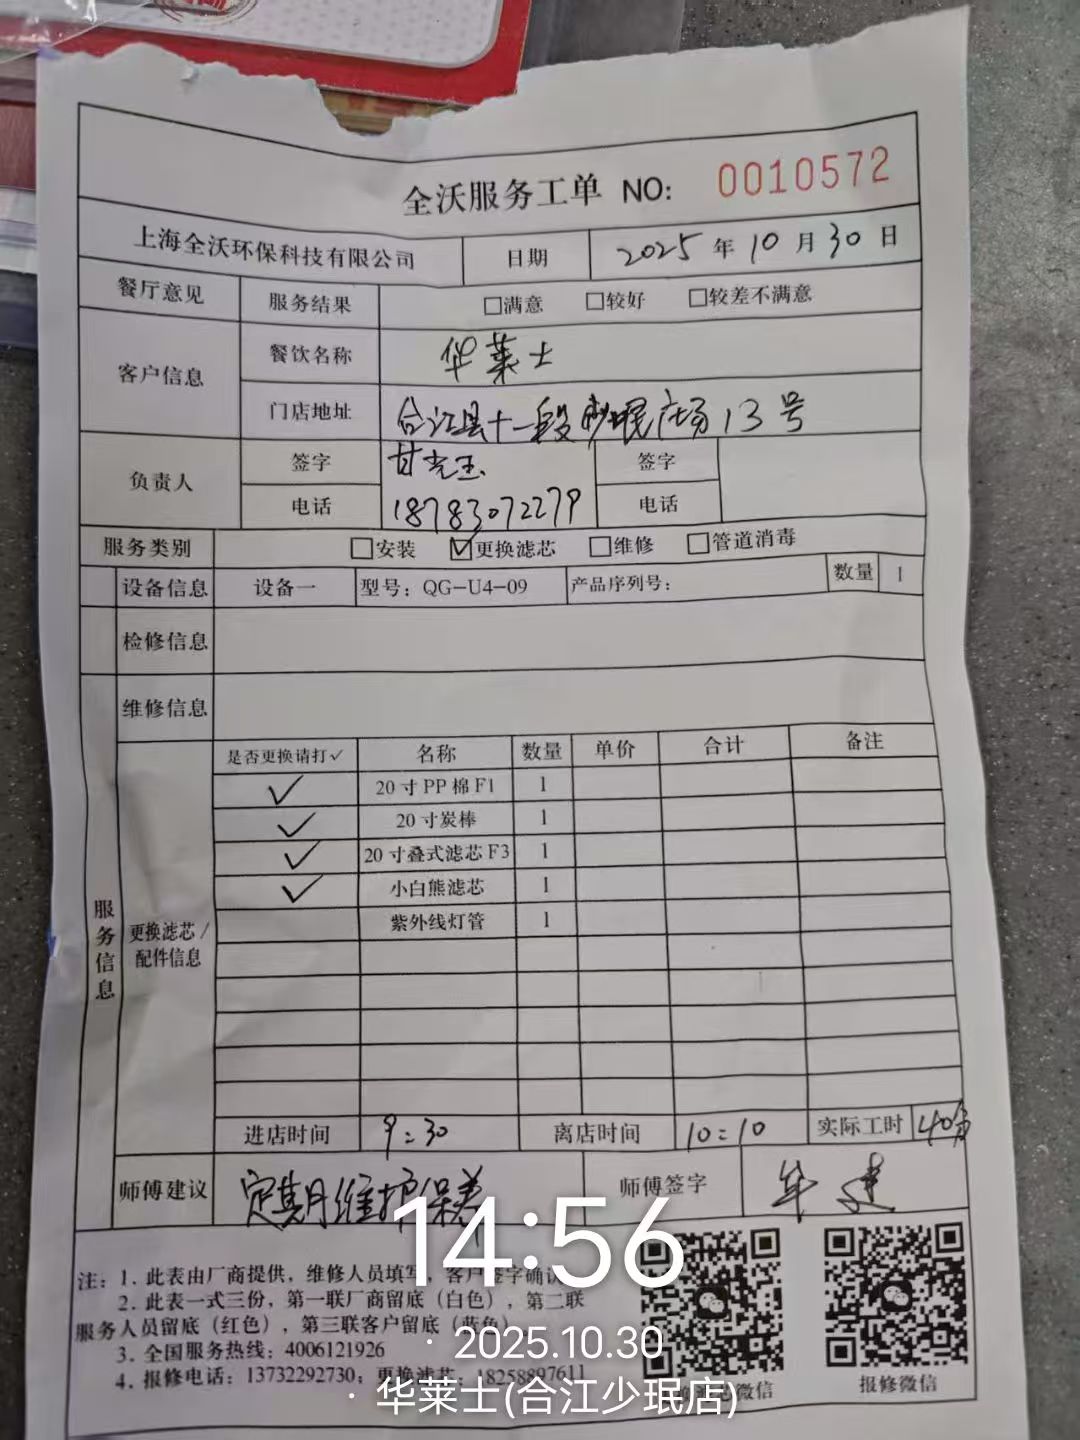 全沃服务工单 NO: 0010572
上海全沃环保科技有限公司 日期 2025年10月30日
餐厅意见 服务结果 □满意 □较好 □较差不满意
客户信息 餐饮名称 华莱士
门店地址 合江县十一段少岷广场13号
负责人 签字 甘光玉 签字
电话 18783072279 电话
服务类别 □安装 ☑更换滤芯 □维修 □管道消毒
设备信息 设备一 型号：QG-U4-09 产品序列号： 数量 1
检修信息
维修信息
服务信息
更换滤芯/配件信息
是否更换请打✓ 名称 数量 单价 合计 备注
✓ 20寸PP棉F1 1
✓ 20寸炭棒 1
✓ 20寸叠式滤芯F3 1
✓ 小白熊滤芯 1
紫外线灯管 1
进店时间 9:30 离店时间 10:10 实际工时 40分
师傅建议 定期维护保养 师傅签字 年建
注：1. 此表由厂商提供，维修人员填写，客户签字确认
2. 此表一式三份，第一联厂商留底（白色），第二联
服务人员留底（红色），第三联客户留底（蓝色）
3. 全国服务热线：4006121926
4. 报修电话：13732292730；更换滤芯：18258897611
微信 报修微信
14:56
· 2025.10.30
· 华莱士(合江少珉店)